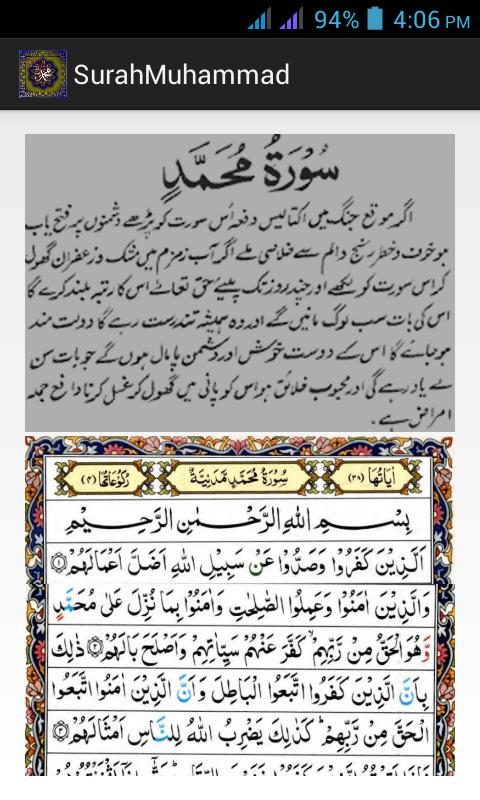 94% 4:06 PM
SurahMuhammad
سُوْرَةُ مُحَمَّدٍ
اگر موقع جنگ میں اکتالیس دفعہ اُس سورت کو پڑھے دشمنوں پر فتح یاب
ہو خوف و خطر رنج و الم سے خلاصی ملے اگر آب زمزم میں مشک و زعفران گھول
کر اس سورت کو لکھے اور چند روز تک پلیئے حق تعالےٰ اس کا رتبہ بلند کرے گا
اس کی بات سب لوگ مانیں گے اور وہ ہمیشہ تندرست رہے گا دولت مند
ہو جائے گا اس کے دوست خوش اور دشمن پامال ہوں گے جو بات سن
لے یاد رہے گی اور محبوب خلائق ہو اس کو پانی میں گھول کر غسل کرنا دافع جملہ
امراض ہے۔
اٰیَاتُهَا (۳۸) سُوْرَةُ مُحَمَّدٍ مَّدَنِیَّةٌ رُكُوْعَاتُهَا (۴)
بِسْمِ اللهِ الرَّحْمٰنِ الرَّحِیْمِ
اَلَّذِیْنَ كَفَرُوْا وَصَدُّوْا عَنْ سَبِیْلِ اللهِ اَضَلَّ اَعْمَالَهُمْ ۝۱
وَالَّذِیْنَ اٰمَنُوْا وَعَمِلُوا الصّٰلِحٰتِ وَاٰمَنُوْا بِمَا نُزِّلَ عَلٰی مُحَمَّدٍ
وَّهُوَ الْحَقُّ مِنْ رَّبِّهِمْ ۙ كَفَّرَ عَنْهُمْ سَیِّاٰتِهِمْ وَاَصْلَحَ بَالَهُمْ ۝۲ ذٰلِكَ
بِاَنَّ الَّذِیْنَ كَفَرُوا اتَّبَعُوا الْبَاطِلَ وَاَنَّ الَّذِیْنَ اٰمَنُوا اتَّبَعُوا
الْحَقَّ مِنْ رَّبِّهِمْ ؕ كَذٰلِكَ یَضْرِبُ اللهُ لِلنَّاسِ اَمْثَالَهُمْ ۝۳